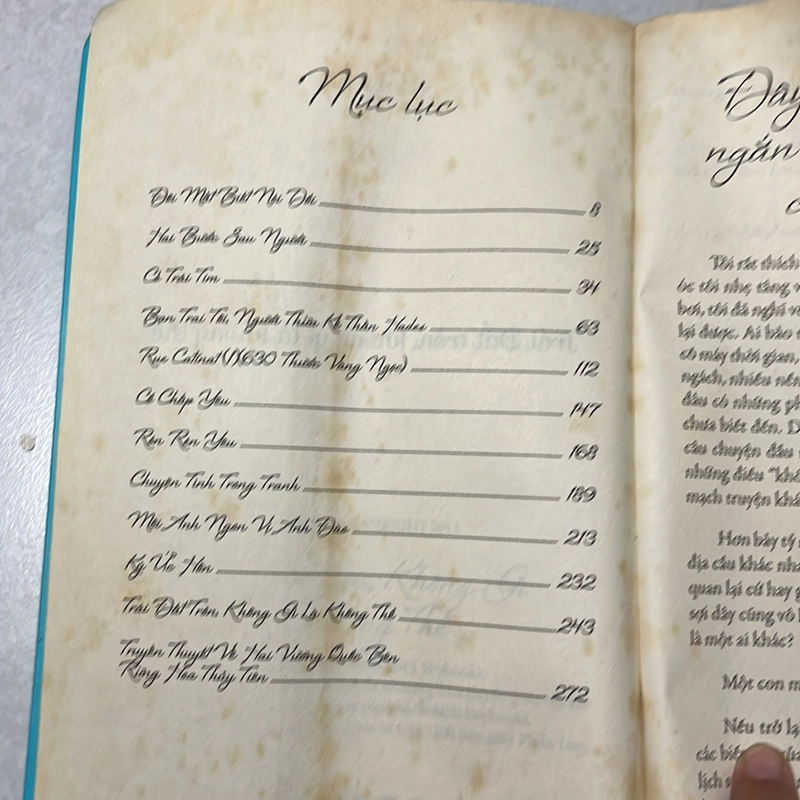 Mục lục
Đôi Mắt Biết Nói Dối 8
Hai Bước Sau Người 25
Cỏ Trái Tim 34
Bạn Trai Tôi, Người Thừa Kế Thần Hades 63
Rue Catinat (1)(630 Thước Vàng Ngọc) 112
Cố Chấp Yêu 147
Rón Rén Yêu 168
Chuyện Tình Trong Tranh 189
Môi Anh Ngon Vị Anh Đào 213
Ký Ức Hôn 232
Trái Đất Tròn, Không Gì Là Không Thể 243
Truyền Thuyết Về Hai Vương Quốc Bên
Rừng Hoa Thủy Tiên 272
Đây
ngắn
Tôi rất thích
bơi, tôi đã nghĩ
lại được. Ai bảo
có máy thời gian,
ngách, nhiều
đâu có những
chưa biết đến.
câu chuyện đầu
những điều "khô
mạch truyện
Hơn bày tỏ
địa cầu khác
quan lại cứ hay
sợi dây cũng vô
là một ai khác?
Một con
Nếu trở lại
các
lịch